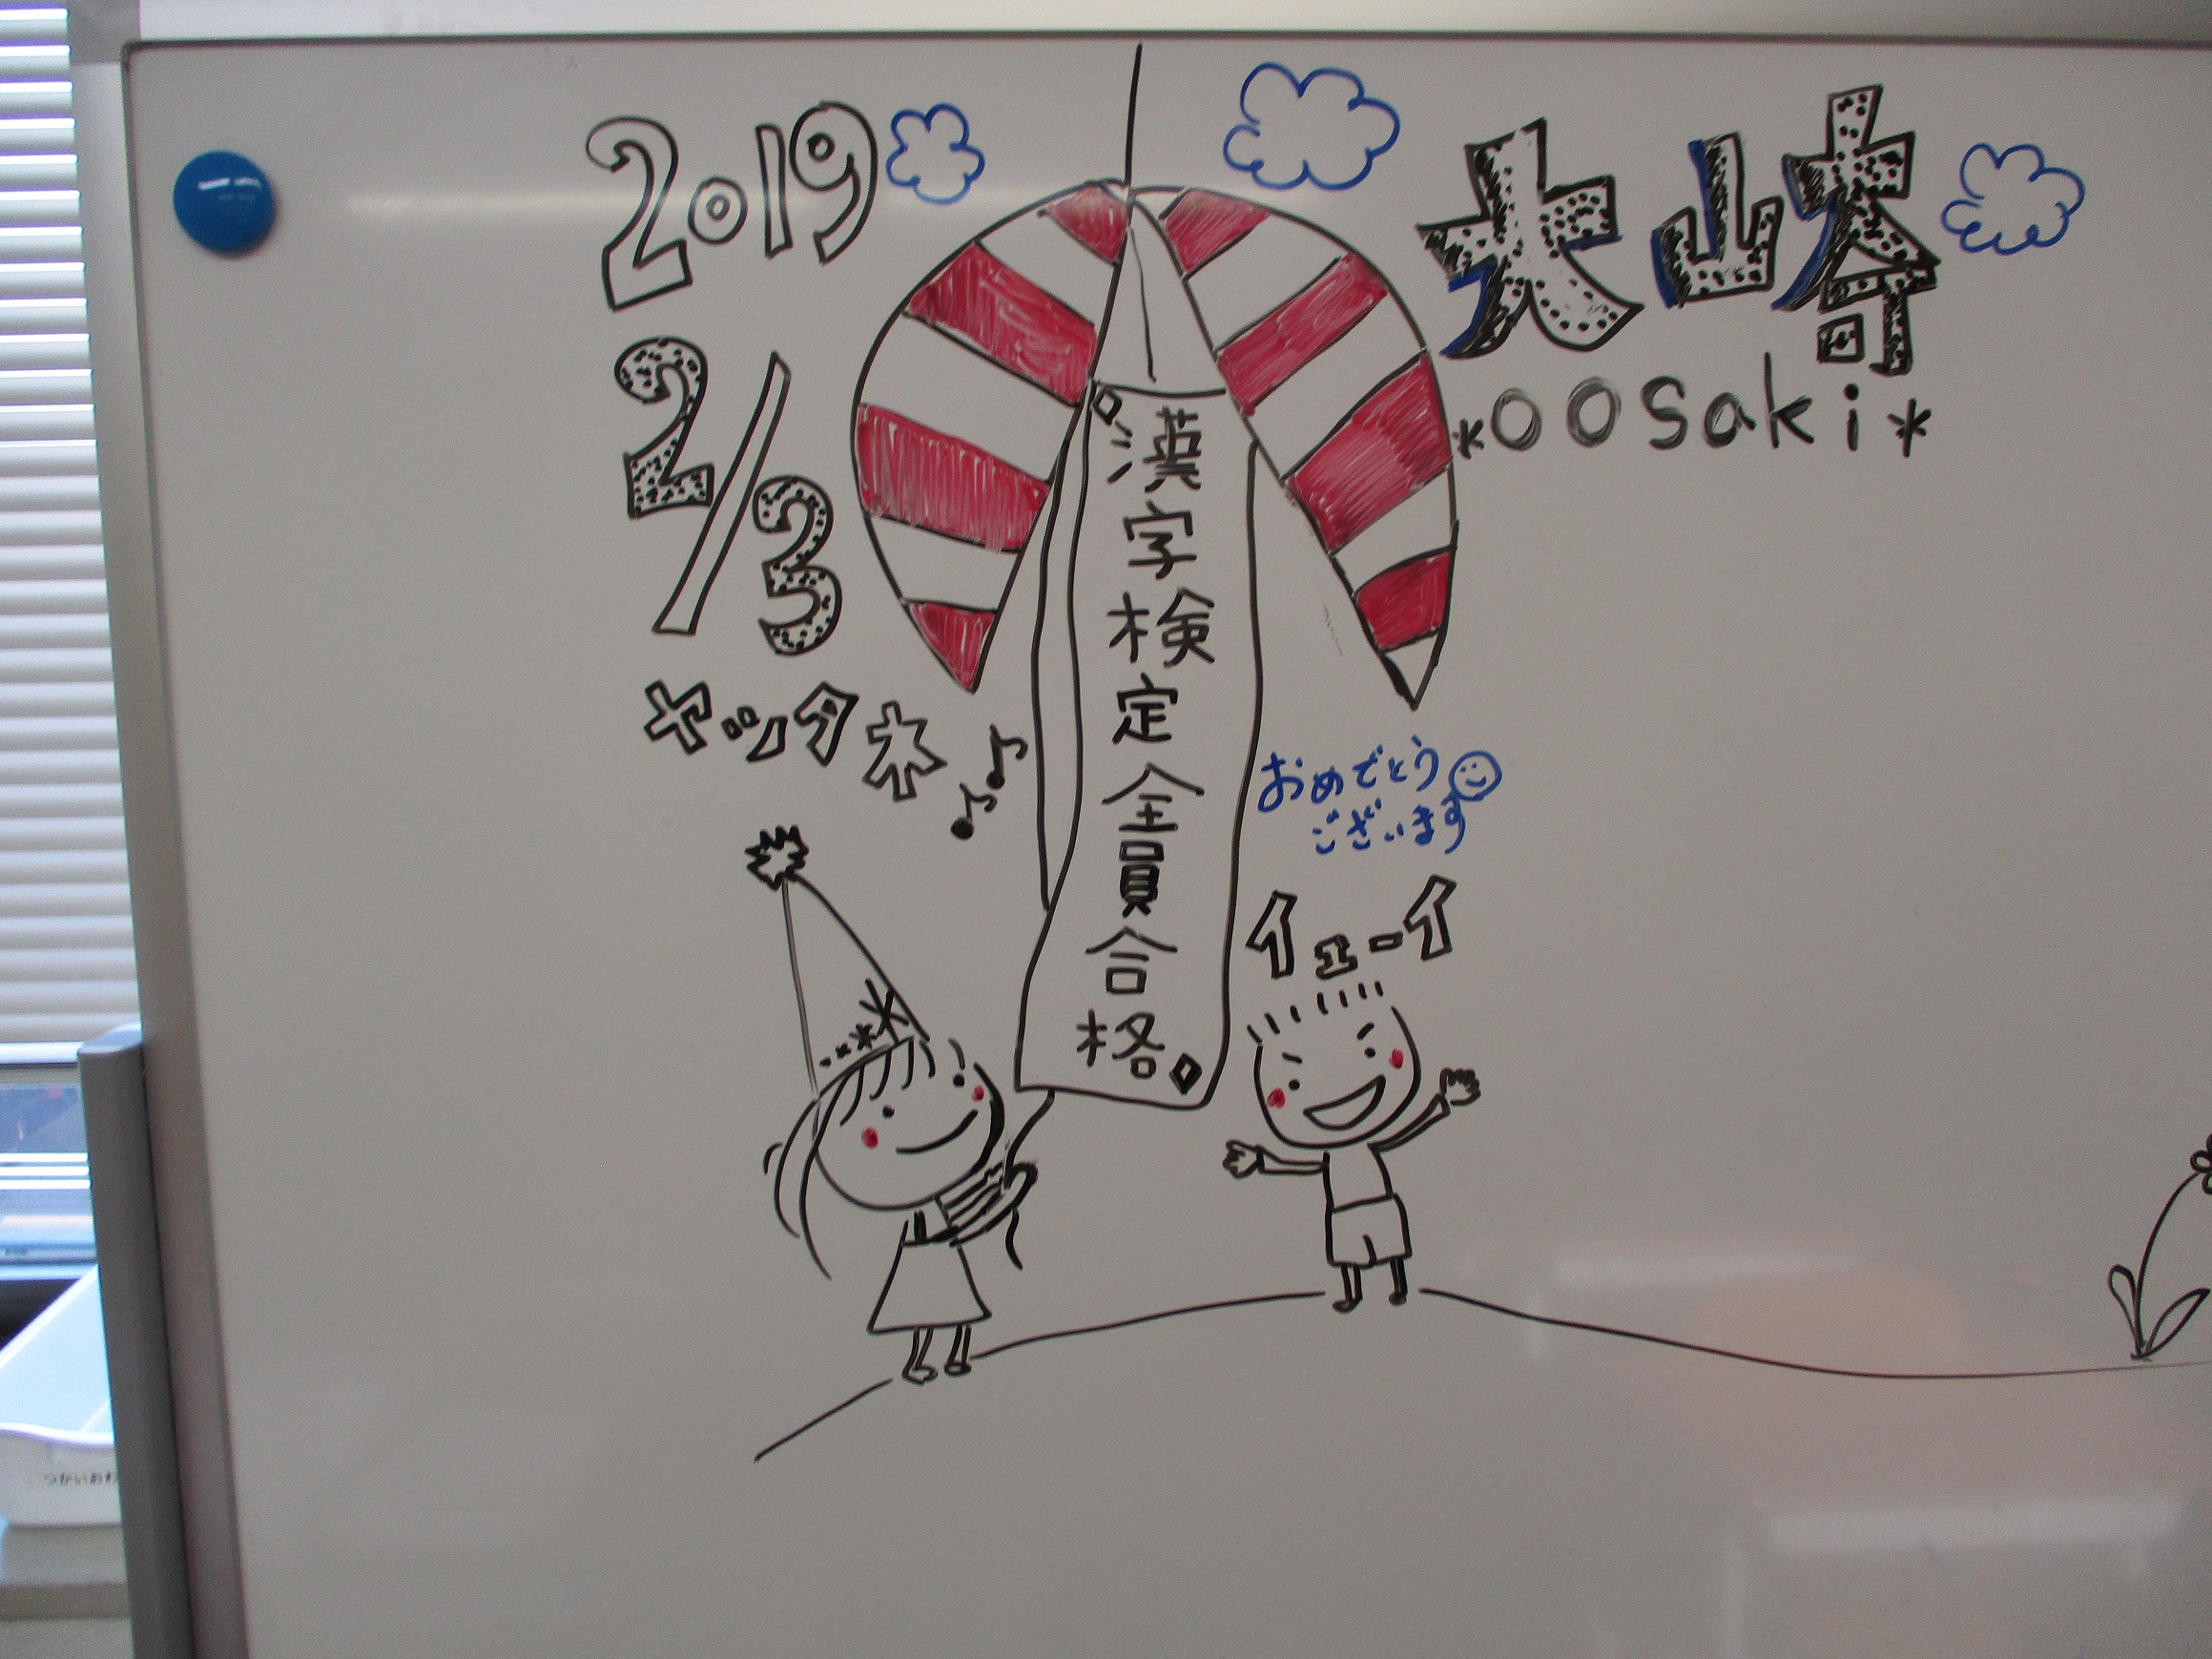 2019
2/3
ヤッタネ
漢字検定全員合格
大崎
*OOsaki*
おめでとう
ございます
イェーイ
つかいおわ